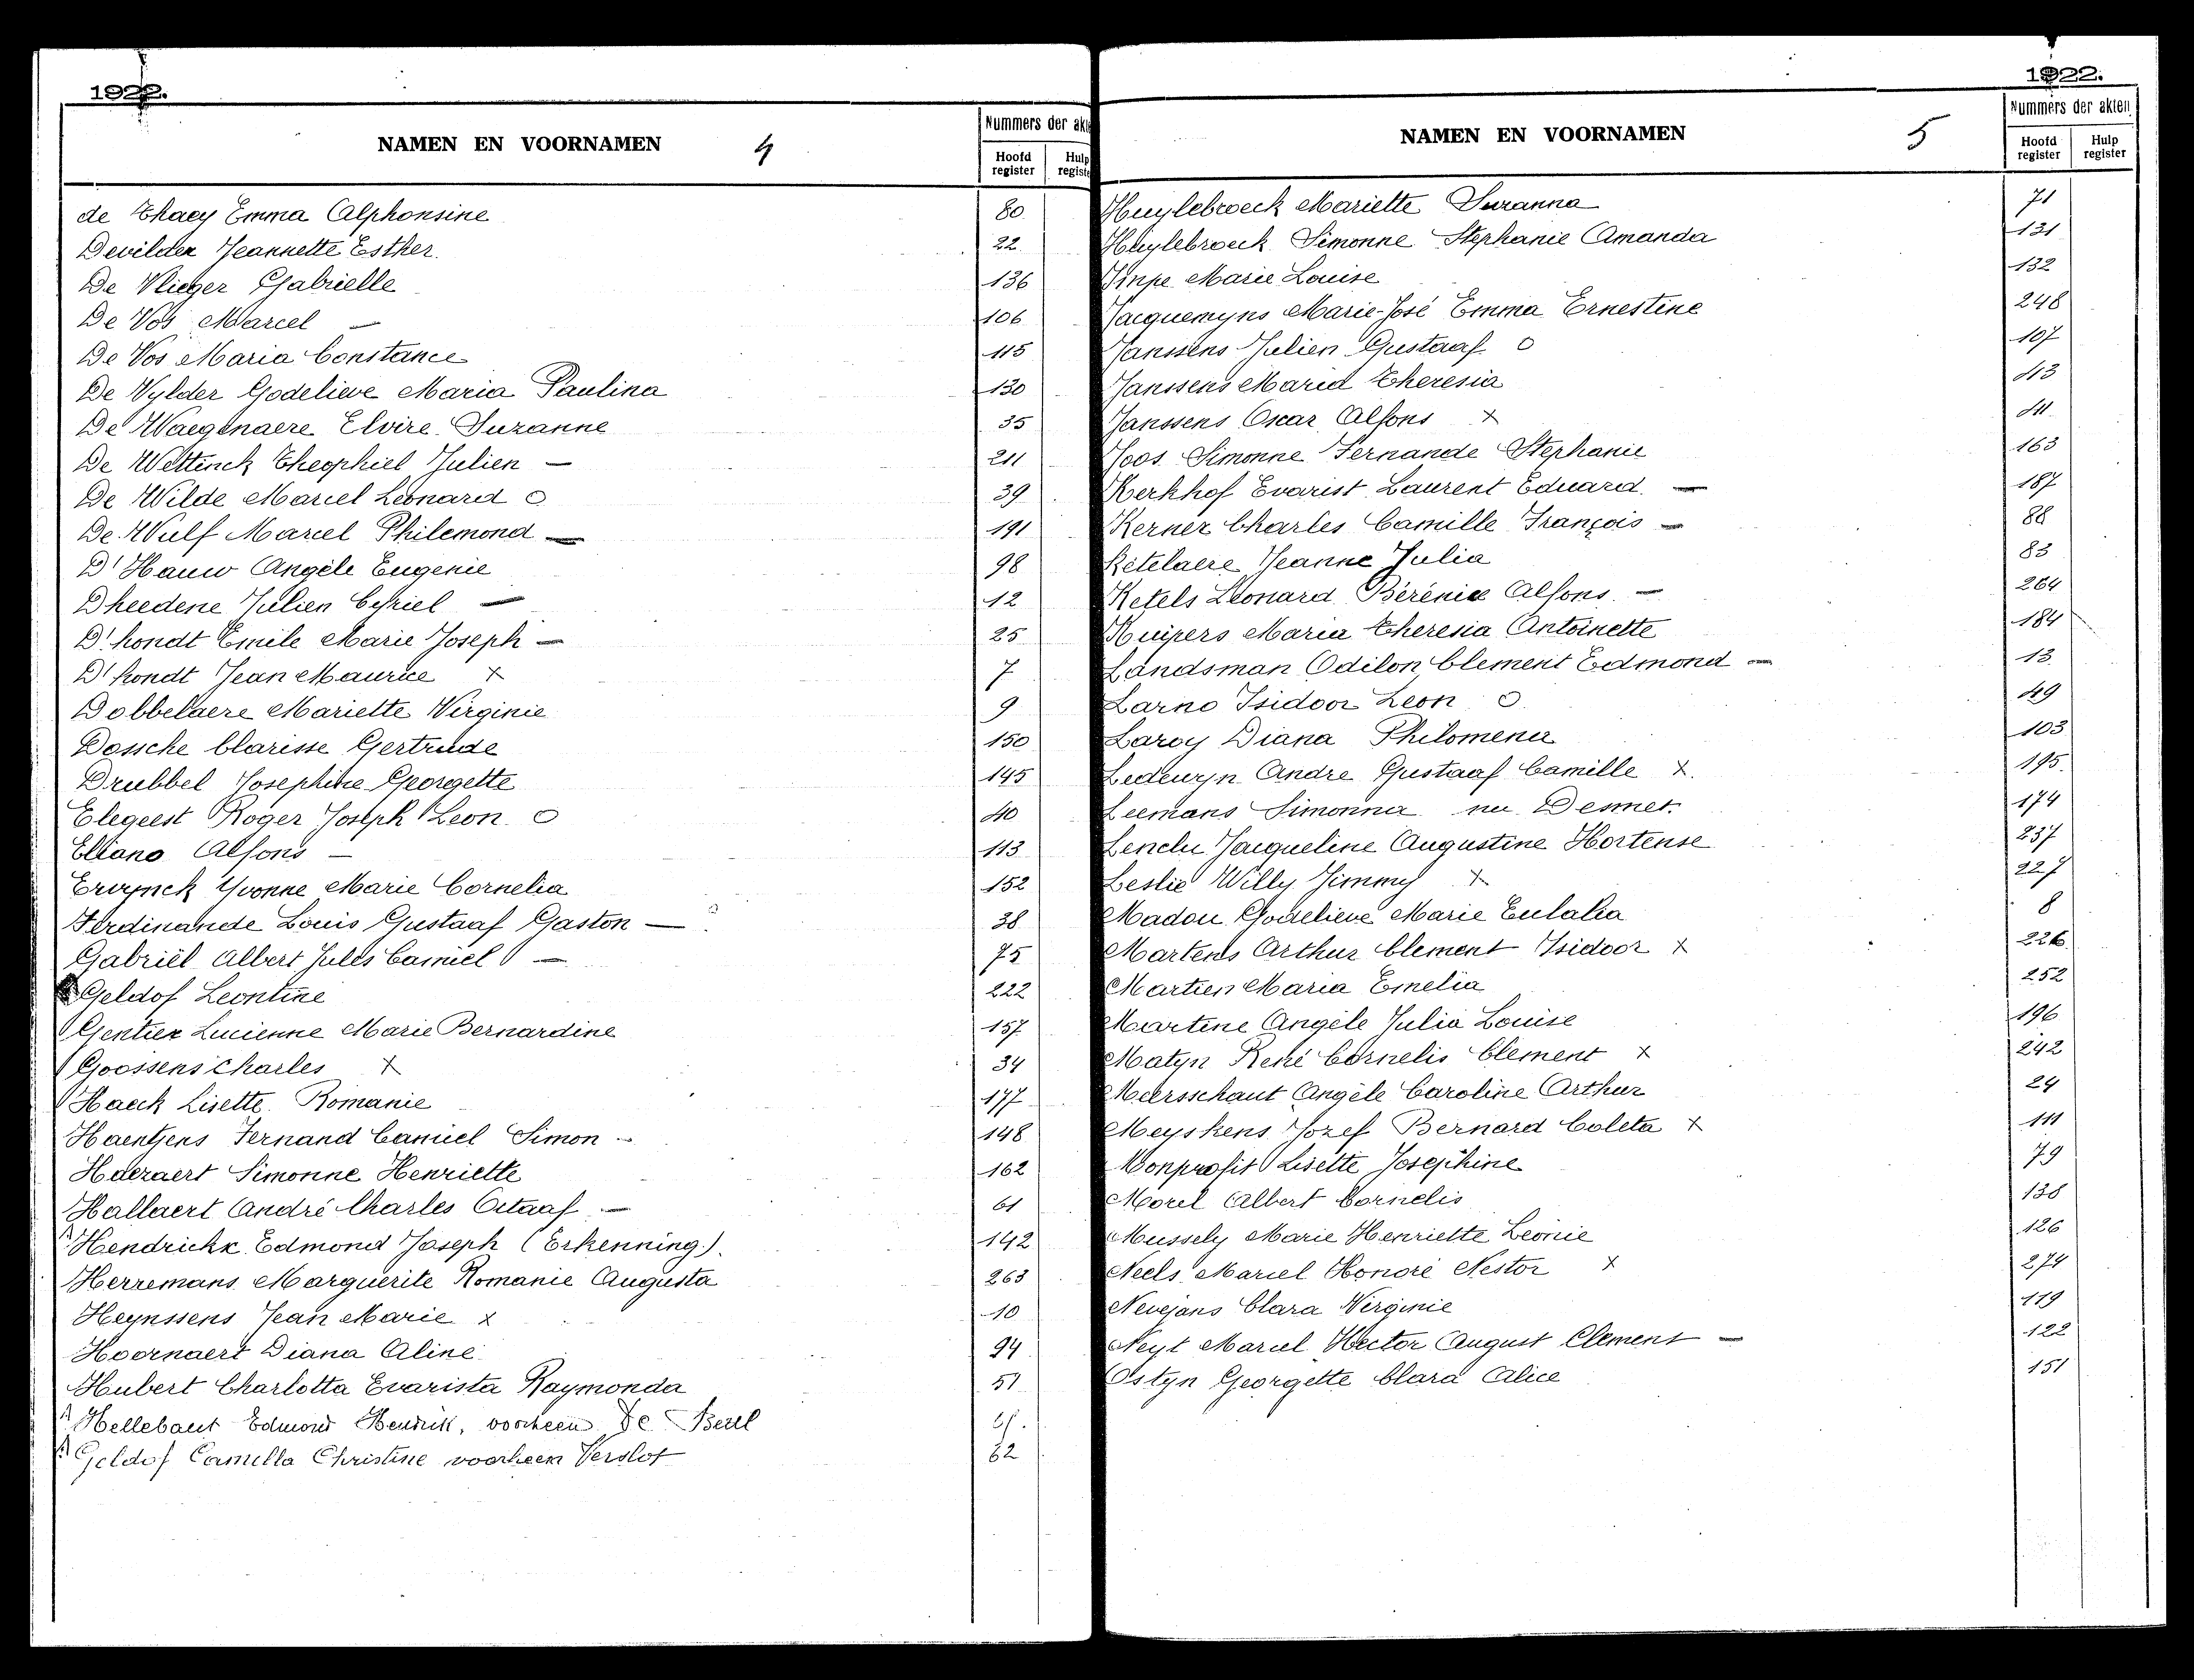 1922.
NAMEN EN VOORNAMEN 4
Nummers der akt
Hoofd register Hulp registe
de Thaey Emma Alphonsine 80
Devilder Jeannette Esther 22
De Vlieger Gabrielle 136
De Vos Marcel — 106
De Vos Maria Constance 115
De Wylder Godelieve Maria Paulina 130
De Waegenaere Elvire Suzanne 35
De Wettinck Theophiel Julien — 211
De Wilde Marcel Leonard O 39
De Wulf Marcel Philemond — 191
D'Hauw Angèle Eugenie 98
Dheedene Julien Cyriel — 12
D'hondt Emile Marie Joseph — 25
D'hondt Jean Maurice x 7
Dobbelaere Mariette Virginie 9
Dossche Clarisse Gertrude 150
Drubbel Josephine Georgette 145
Elegeest Roger Joseph Leon O 40
Elliano Alfons — 113
Ervynck Yvonne Marie Cornelia 152
Ferdinande Louis Gustaaf Gaston — 38
Gabriël Albert Jules Camiel — 75
Geldof Leontine 222
Gentier Lucienne Marie Bernardine 157
Goossens Charles x 34
Haeck Lisette Romanie 177
Haentjens Fernand Camiel Simon - 148
Haezaert Simonne Henriette 162
Hallaert André Charles Octaaf — 61
Hendrickx Edmond Joseph (Erkenning). 142
Herremans Marguerite Romanie Augusta 263
Heynssens Jean Marie x 10
Hoornaert Diana Aline 94
Hubert Charlotta Evarista Raymonda 51
Hellebaut Edmond Hendrik, voorheen De
Geldof Camilla Christine voorheen Verslot 62
1922.
NAMEN EN VOORNAMEN 5
Nummers der akten
Hoofd register Hulp register
Huylebroeck Mariette Suzanna 71
Huylebroeck Simonne Stephanie Amanda 131
Impe Marie Louise 132
Jacquemyns Marie-José Emma Ernestine 248
Janssens Julien Gustaaf O 107
Janssens Maria Theresia 43
Janssens Oscar Alfons x 41
Joos Simonne Fernande Stephanie 163
Kerkhof Evarist Laurent Eduard. — 187
Kerner Charles Camille François — 88
Ketelaere Jeanne Julia 83
Ketels Leonard Bérénice Alfons. — 264
Kuipers Maria Theresia Antoinette 184
Landsman Odilon Clement Edmond — 13
Larno Isidoor Leon O 49
Laroy Diana Philomena 103
Ledewyn Andre Gustaaf Camille x. 195
Leemans Simonna nu Desmet. 174
Lenclu Jacqueline Augustine Hortense 237
Leslie Willy Jimmy x 227
Madou Godelieve Marie Eulalia 8
Martens Arthur Clement Isidoor x 226
Martien Maria Emelia 252
Martine Angèle Julia Louise 196
Matyn René Cornelis Clement x 242
Meersschaut Angèle Caroline Arthur 24
Meyskens Jozef Bernard Coleta x 111
Monprofit Lisette Josephine 79
Morel Albert Cornelis 138
Mussely Marie Henriette Leonie 126
Neels Marcel Honoré Nestor x 274
Nevejans Clara Virginie 119
Neyt Marcel Hector August Clement — 122
Ostyn Georgette Clara Alice 151